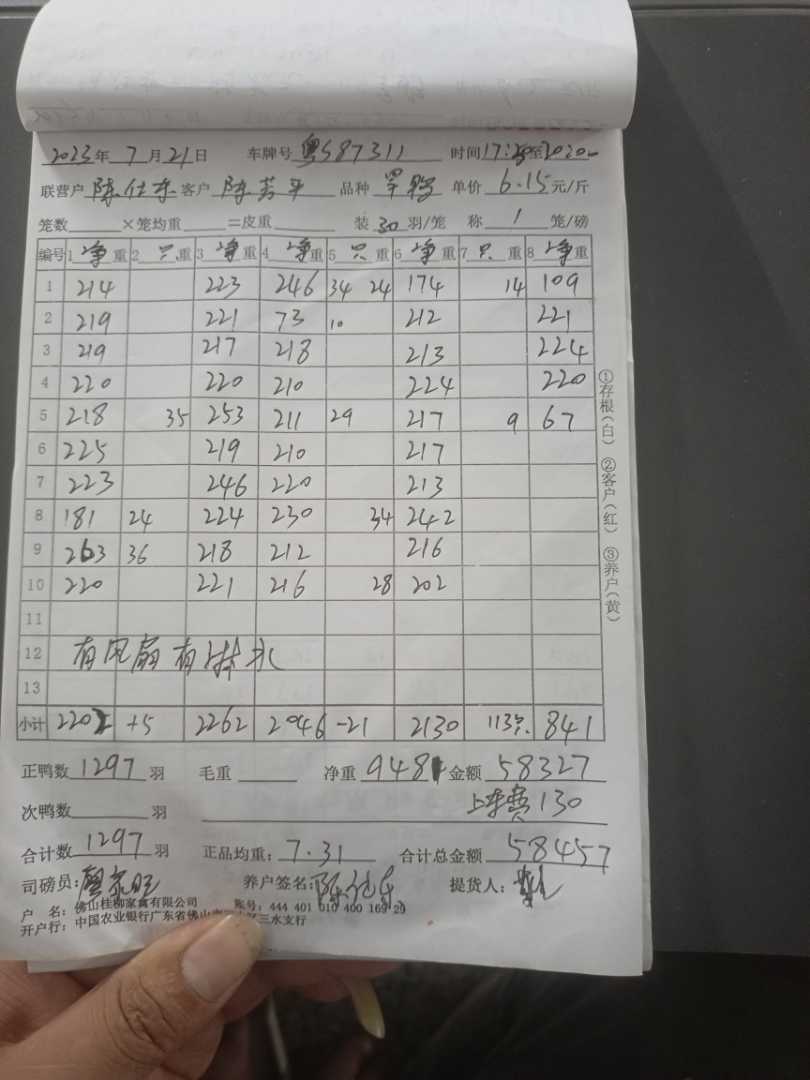 2023年 7月21日 车牌号 粤S87311 时间17:20至2020
联营户 陈仕东 客户 陈芳平 品种 单价 6.15元/斤
笼数 ×笼均重 =皮重 装30羽/笼 称 1 笼/磅
编号 1净重 2只重 3净重 4净重 5只重 6净重 7只重 8净重
1 214 223 246 34 24 174 14 109
2 219 221 73 10 212 221
3 219 217 218 213 224
4 220 220 210 224 220
5 218 35 253 211 29 217 9 67
6 225 219 210 217
7 223 246 220 213
8 181 24 224 230 34 242
9 263 36 218 212 216
10 220 221 216 28 202
11
12 有风扇有淋水
13
小计 2202 +5 2262 2046 -21 2130 113只 841
正鸭数 1297 羽 毛重 净重 9481 金额 58327
次鸭数 羽 上车费130
合计数 1297 羽 正品均重: 7.31 合计总金额 58457
司磅员: 养户签名: 提货人:
户 名: 佛山桂柳家禽有限公司 账号: 444 401 010 400 169 29
开户行: 中国农业银行广东省佛山市三水支行
①存根(白) ②客户(红) ③养户(黄)